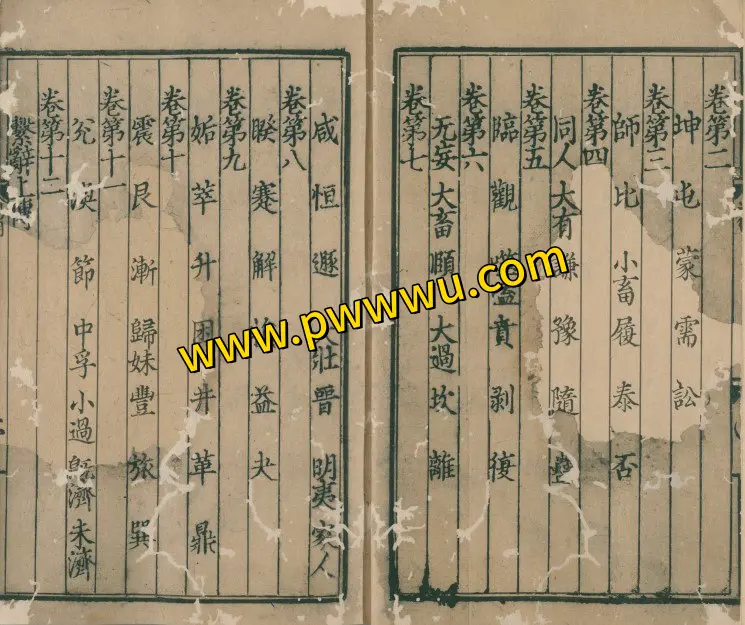 卷第二
坤 屯 蒙 需 訟
卷第三
師 比 小畜 履 泰 否
卷第四
同人 大有 謙 豫 隨 蠱
卷第五
臨 觀 噬嗑 賁 剥 復
卷第六
无妄 大畜 頤 大過 坎 離
卷第七
咸 恒 遯 大壯 晉 明夷 家人
卷第八
睽 蹇 解 益 夬
卷第九
姤 萃 升 困 井 革 鼎
卷第十
震 艮 漸 歸妹 豐 旅 巽
卷第十一
兊 渙 節 中孚 小過 旣濟 未濟
卷第十二
繫辭上傳
www.pwwwu.com